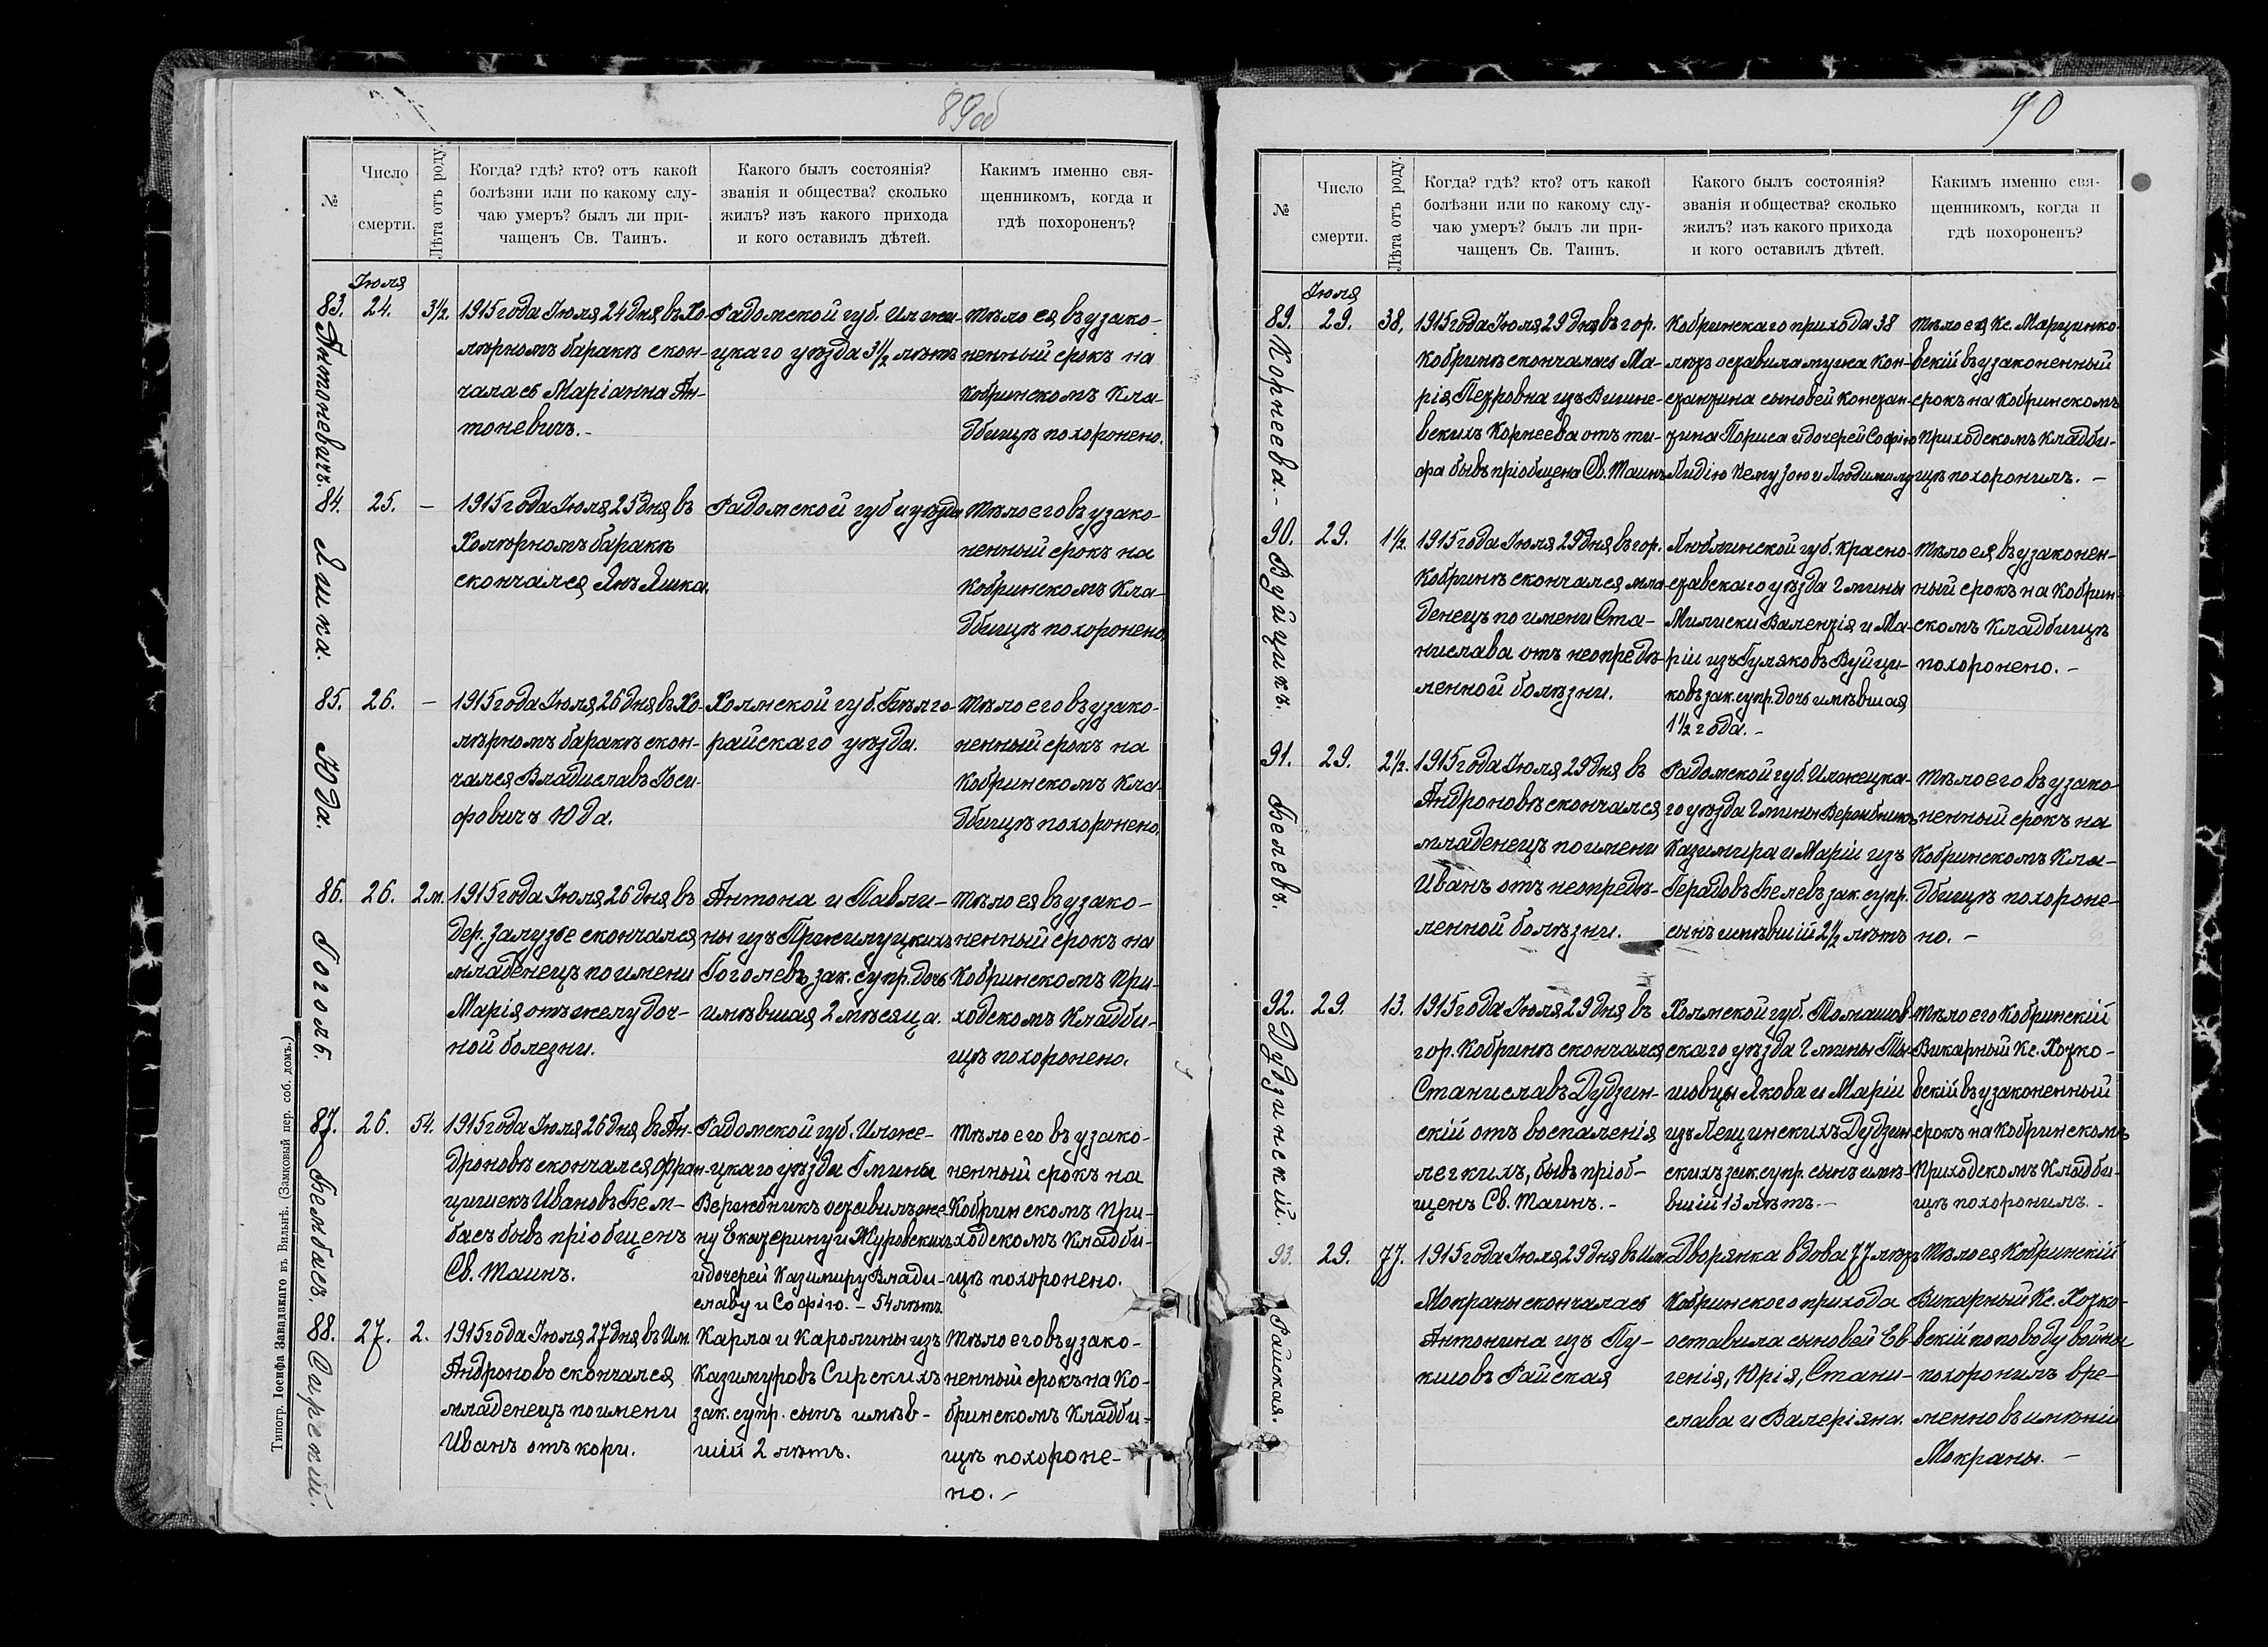 89об
№
Число
смерти.
Лѣта отъ роду.
Когда? гдѣ? кто? отъ какой
болѣзни или по какому слу-
чаю умеръ? былъ ли при-
чащенъ Св. Таинъ.
Какого былъ состоянія?
званія и общества? сколько
жилъ? изъ какого прихода
и кого оставилъ дѣтей.
Какимъ именно свя-
щенникомъ, когда и
гдѣ похороненъ?
Іюля
83.
Антоневичъ.
24.
3½.
1915 года Іюля 24 дня въ Хо-
лѣрномъ баракѣ скон-
чалась Маріанна Ан-
тоневичъ.-
Радомской губ. Илжи-
цкаго уѣзда 3½ лѣтъ
тѣло ея въ узако-
ненный срокъ на
Кобринскомъ Кла-
дбищѣ похоронено.
84.
Яшка.
25.
–
1915 года Іюля 25 дня въ
Холѣрномъ баракѣ
скончался Янъ Яшка.
Радомской губ и уѣзда
тѣло его въ узако-
ненный срокъ на
Кобринскомъ Кла-
дбищѣ похоронено
85.
Юда.
26.
–
1915 года Іюля 26 дня въ Хо-
лѣрномъ баракѣ скон-
чался Владиславъ Іоси-
фовичъ Юда.
Холмской губ. Бѣлго-
райскаго уѣзда.
тѣло его въ узако-
ненный срокъ на
Кобринскомъ Кла-
дбищѣ похоронено.
86.
Гоголь.
26.
2 м.
1915 года Іюля 26 дня въ
дер. Залузье скончался
младенецъ по имени
Марія отъ желудоч-
ной болезни.
Антона и Павли-
ны изъ Прилуцкихъ
Гоголевъ зак. супр. дочь
имѣвшая 2 мѣсяца.
тѣло ея въ узако-
ненный срокъ на
Кобринскомъ при-
ходскомъ Кладби-
щѣ похоронено.
87.
Бембасъ.
26.
54.
1915 года Іюля 26 дня въ Ан-
дроновѣ скончался Фран-
цишекъ Ивановъ Бем-
басъ бывъ пріобщенъ
Св. Таинъ.
Радомской губ. Илже-
цкаго уѣзда Гмины
Вержбникъ оставилъ же-
ну Екатерину и Журовскихъ
и дочерей Казимиру Влади-
славу и Софію. – 54 лѣтъ
тѣло его въ узако-
ненный срокъ на
Кобринскомъ при-
ходскомъ Кладби-
щѣ похоронено.
88.
Сирскій.
27.
2.
1915 года Іюля 27 дня въ Им.
Андроново скончался
младенецъ по имени
Иванъ отъ кори.
Карла и Каролины изъ
Казимуровъ Сирскихъ
зак. супр. сынъ имѣв-
шій 2 лѣтъ.
тѣло его въ узако-
ненный срокъ на Ко-
бринскомъ Кладби-
щѣ похороне-
но. –
Типогр. Іосифа Завадзкаго въ Вильнѣ. (Замковый пер. соб. домъ.)
90
№
Число
смерти.
Лѣта отъ роду.
Когда? гдѣ? кто? отъ какой
болѣзни или по какому слу-
чаю умеръ? былъ ли при-
чащенъ Св. Таинъ.
Какого былъ состоянія?
званія и общества? сколько
жилъ? изъ какого прихода
и кого оставилъ дѣтей.
Какимъ именно свя-
щенникомъ, когда и
гдѣ похороненъ?
Іюля
89.
Корнеева.-
29.
38,
1915 года Іюля 29 дня въ гор.
Кобринѣ скончалась Ма-
рія Петровна изъ Вишне-
вскихъ Корнеева отъ ти-
фа бывъ пріобщена Св. Таинъ
Кобринскаго прихода 38
лѣтъ оставила мужа Кон-
стантина сыновей Констан-
тина Бориса и дочерей Софію
Лидію Зою и Людмилу
тѣло ея Кс. Марцинко-
вскій въ узаконенный
срокъ на Кобринскомъ
приходскомъ кладби-
щѣ похоронилъ. –
90.
Вуйцикъ.
29.
1½.
1915 года Іюля 29 дня въ гор.
Кобринѣ скончался мла-
денецъ по имени Ста-
нислава отъ неопредѣ-
ленной болѣзни.
Люблинской губ. Красно-
ставскаго уѣзда Гмины
Милиски Валентія и Ма-
ріи изъ Гуляковъ Вуйци-
ковъ зак. супр. дочь имѣвшая
1½ года. –
тѣло ея въ узаконен-
ный срокъ на Кобрин-
скомъ Кладбищѣ
похоронено. –
91.
Белевъ.
29.
2½.
1915 года Іюля 29 дня въ
Андроновѣ скончался
младенецъ по имени
Иванъ отъ неопредѣ-
ленной болѣзни.
Радомской губ. Илжецка-
го уѣзда Гмины Вержбникъ
Казимира и Маріи изъ
Герадовъ Белевъ зак. супр.
сынъ имѣвшій 2½ лѣтъ
тѣло его въ узако-
ненный срокъ на
Кобринскомъ Кла-
дбищѣ похороне-
но. –
92.
Дудзинскій.
29.
13.
1915 года Іюля 29 дня въ
гор. Кобринѣ скончался
Станиславъ Дудзин-
скій отъ воспаленія
легкихъ, бывъ пріоб-
щенъ Св. Таинъ. -
Холмской губ. Томашов-
скаго уѣзда Гмины Ты-
шовцы Якова и Маріи
изъ Лещинскихъ Дудзин-
скихъ зак. супр. сынъ имѣ-
вшій 13 лѣтъ. –
тѣло его Кобринскій
Викарный Кс. Хотко-
вскій въ узаконенный
срокъ на Кобринскомъ
Приходскомъ Кладби-
щѣ похоронилъ. -
93.
Райская.
29.
77.
1915 года Іюля 29 дня въ Им.
Мокраны скончалась
Антонина изъ Пу-
кшовъ Райская
Дворянка вдова 77 лѣтъ
Кобринского прихода
оставила сыновей Ев-
генія, Юрія, Стани-
слава и Валеріяна.
тѣло ея Кобринскій
Викарный Кс. Хотко-
вскій по поводу войны
похоронилъ вре-
менно въ имѣніи
Мокраны. –